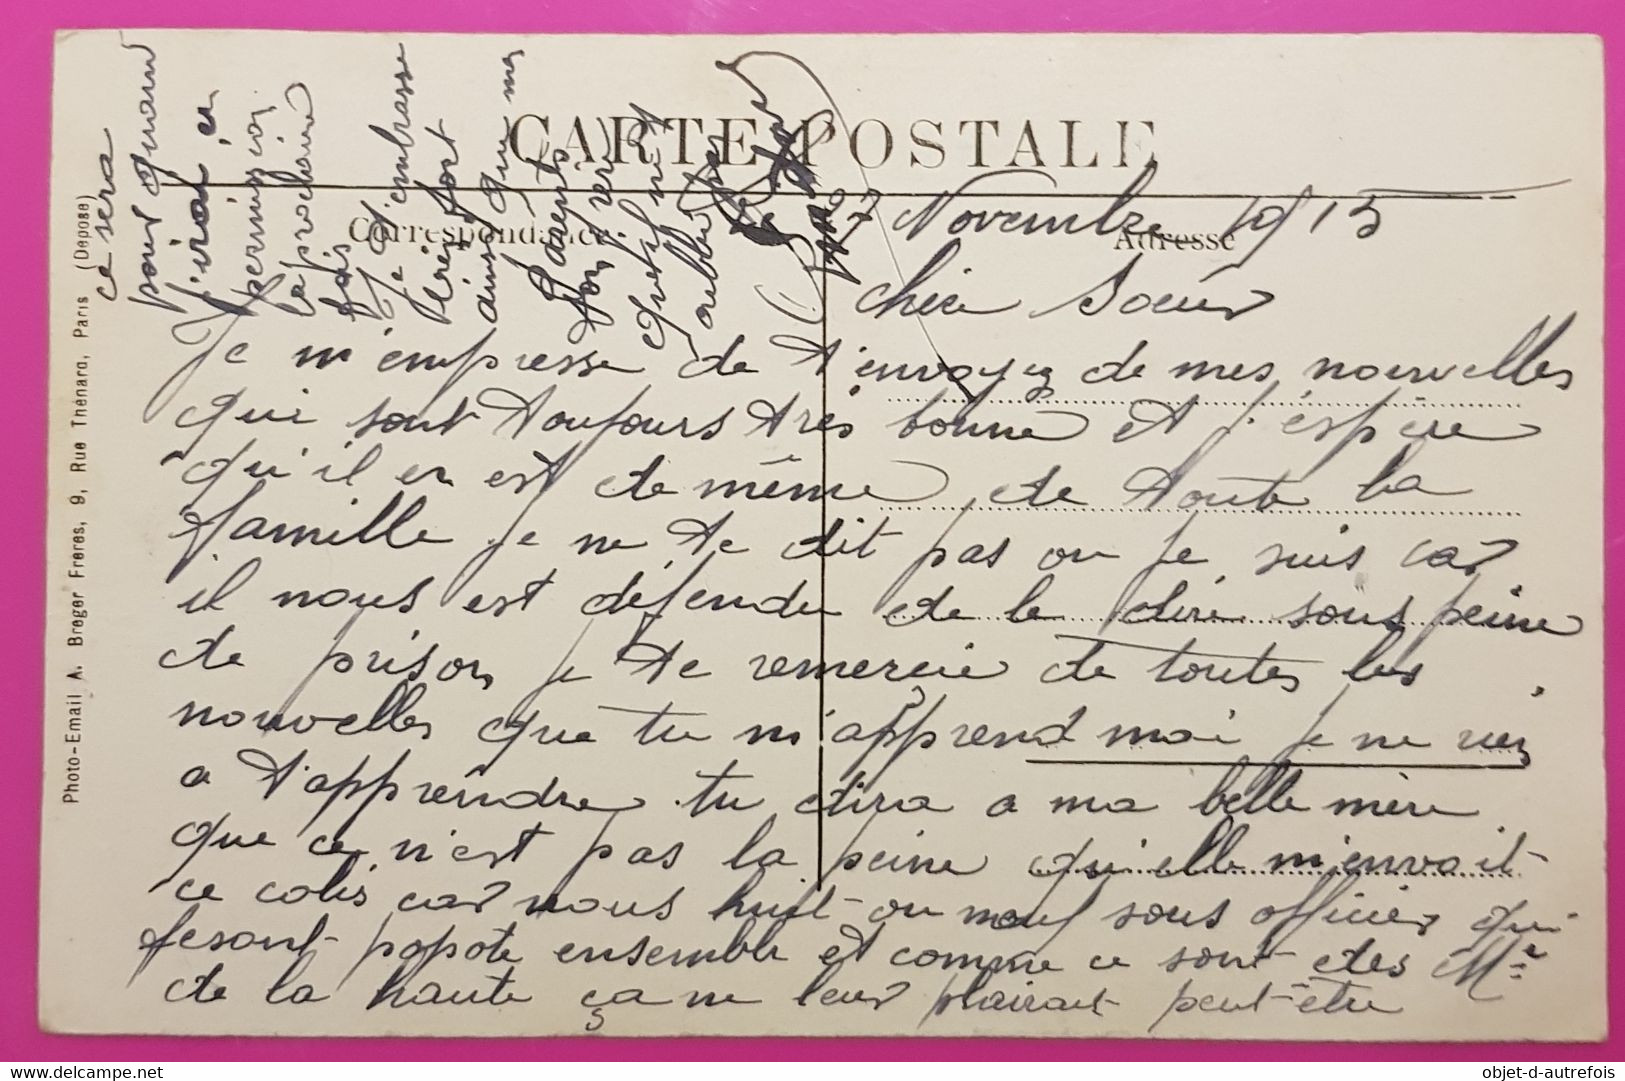 CARTE POSTALE
Correspondance
Adresse
27 Novembre 1915
Chère Soeur
Je m'empresse de t'envoyez de mes nouvelles
qui sont toujours très bonne et j'espère
qu'il en est de même de toute la
famille je ne te dit pas ou je suis car
il nous est défendu de le dire sous peine
de prison je te remercie de toutes les
nouvelles que tu m'apprend moi je ne rien
a t'apprendre tu dira a ma belle mère
que ce n'est pas la peine qu'elle m'envoit
ce colis car nous huit ou neuf sous officier qui
fesont popote ensemble et comme ce sont des Mr
de la haute ça ne leur plairait peut-être
ce sera
pour quand
j'irai en
permission
la prochaine
fois
Je t'embrasse
bien fort
ainsi que mes
Parents
Ton
oublier pas
Photo-Email A. Breger Frères, 9, Rue Thénard, Paris (Déposé)
objet-d-autrefois
delcampe.net